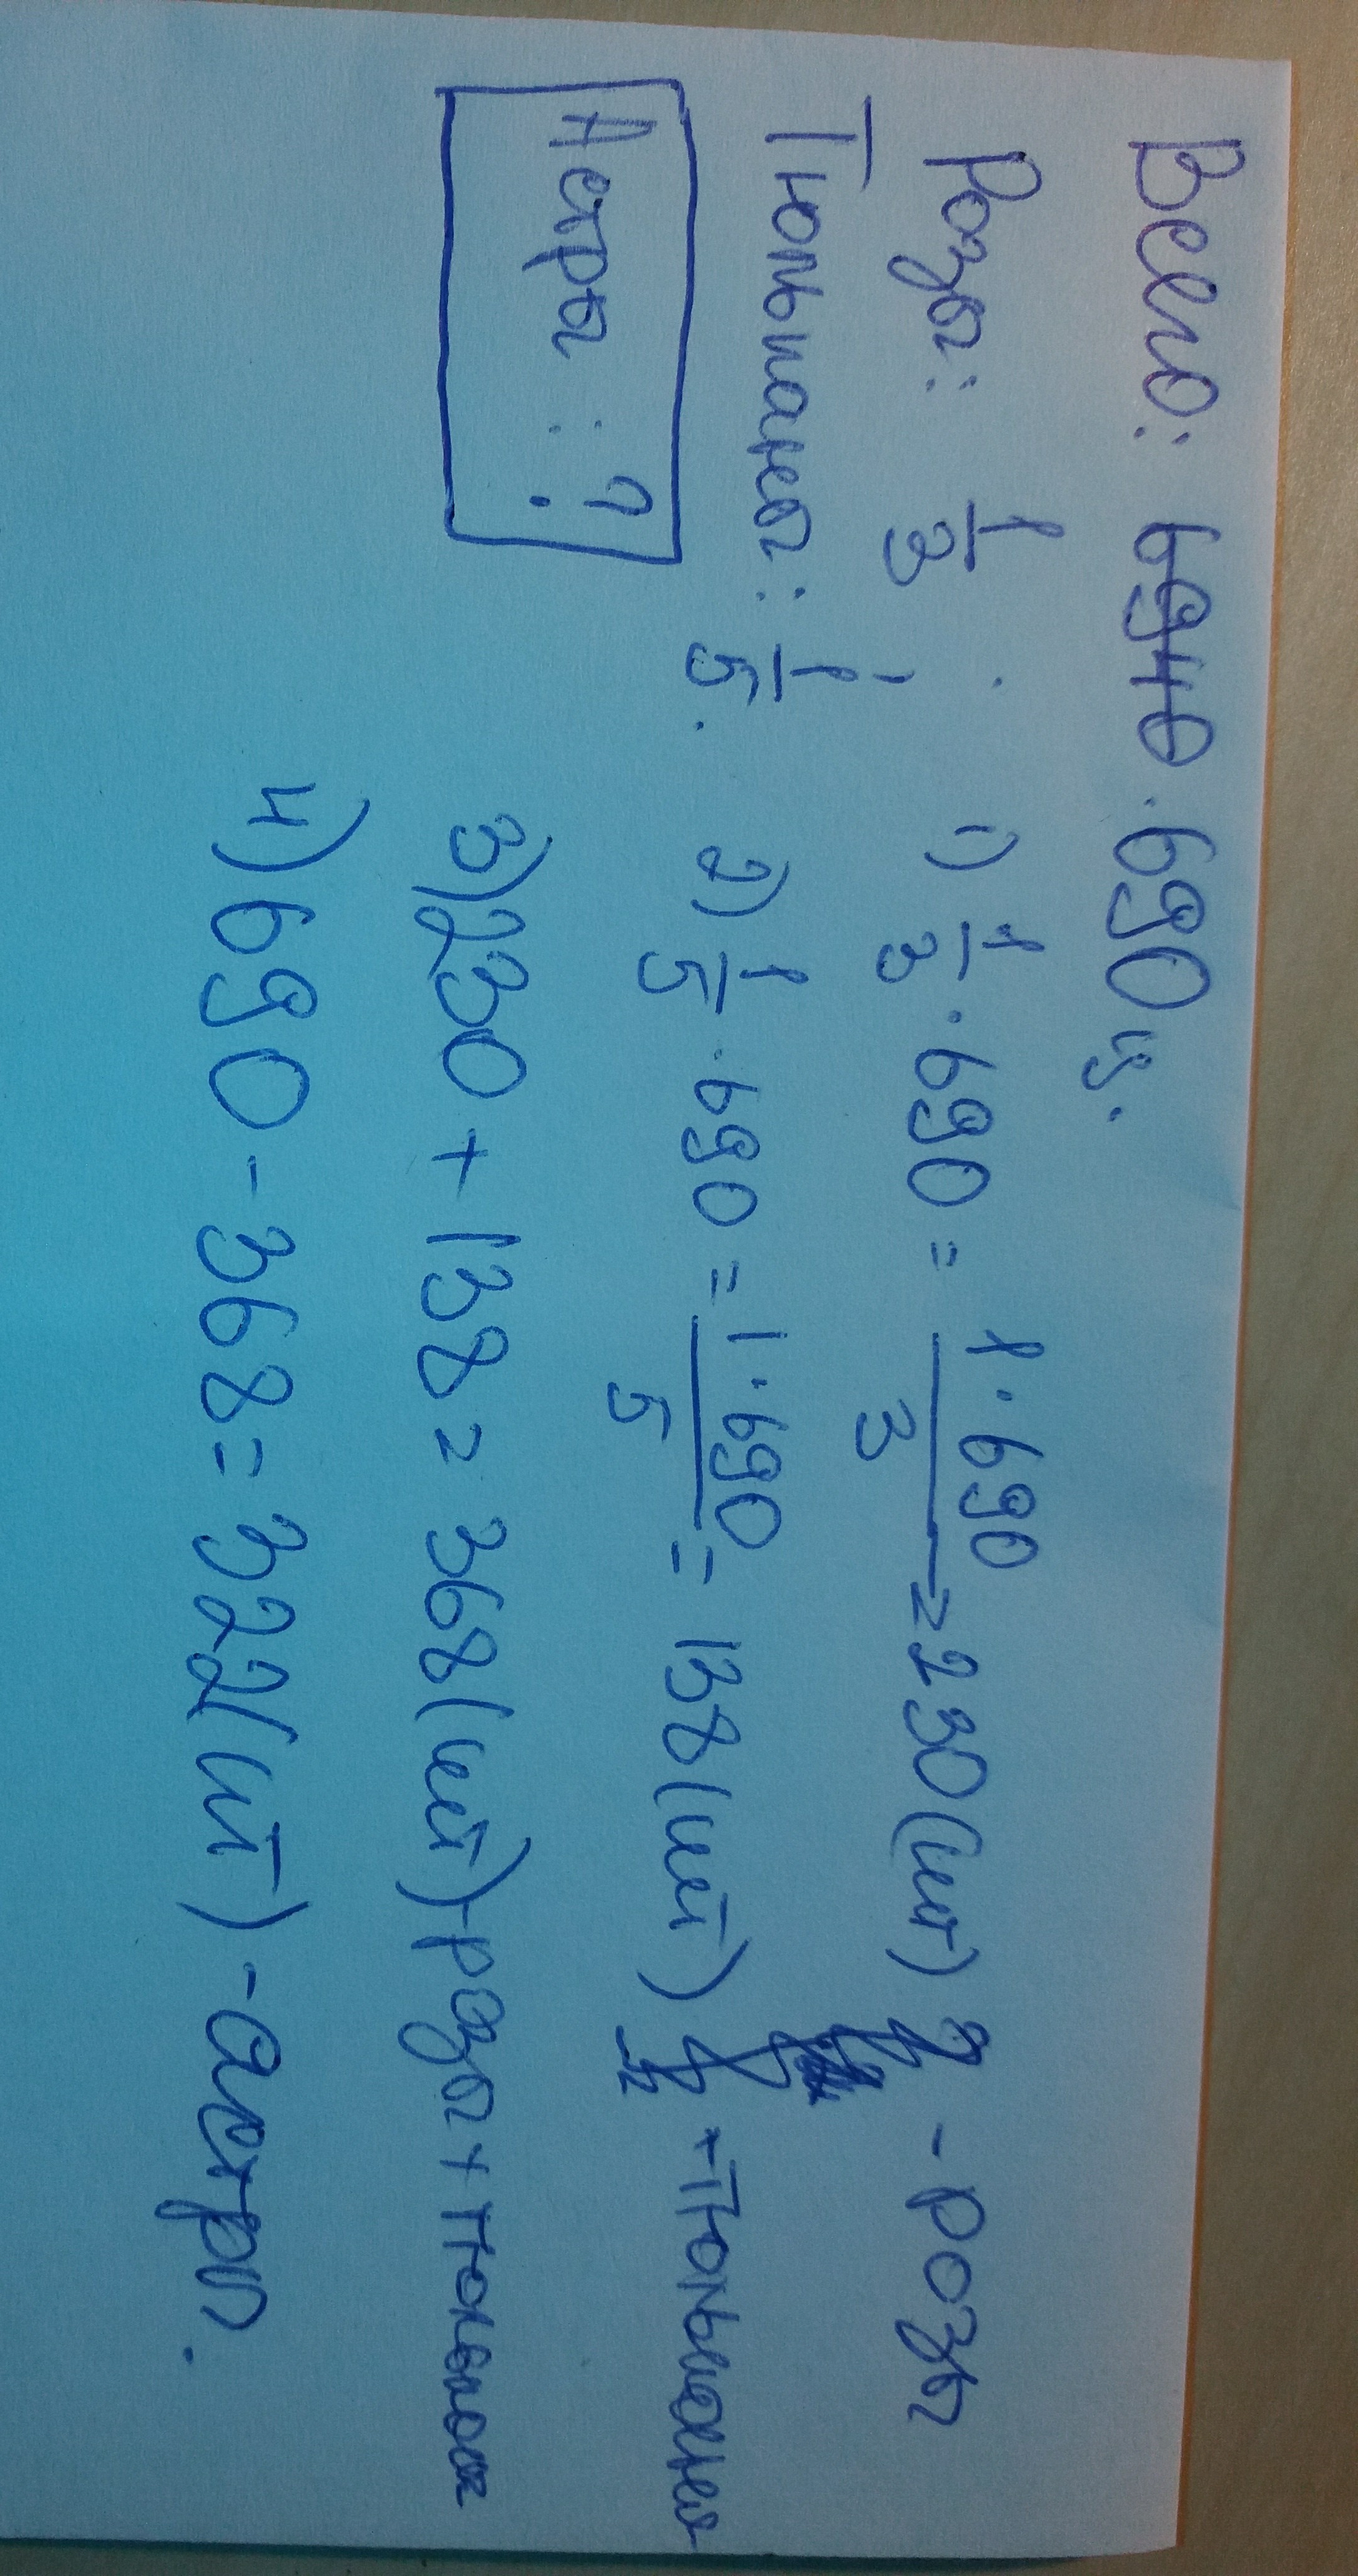 Всего: 690 ц.
Розы: 1/3 ;
Тюльпаны: 1/5.
Астры: ?
1) 1/3 · 690 = 1·690/3 = 230 (шт) - розы
2) 1/5 · 690 = 1·690/5 = 138 (шт) - тюльпаны
3) 230 + 138 = 368 (шт) - розы + тюльпан
4) 690 - 368 = 322 (шт) - астры.